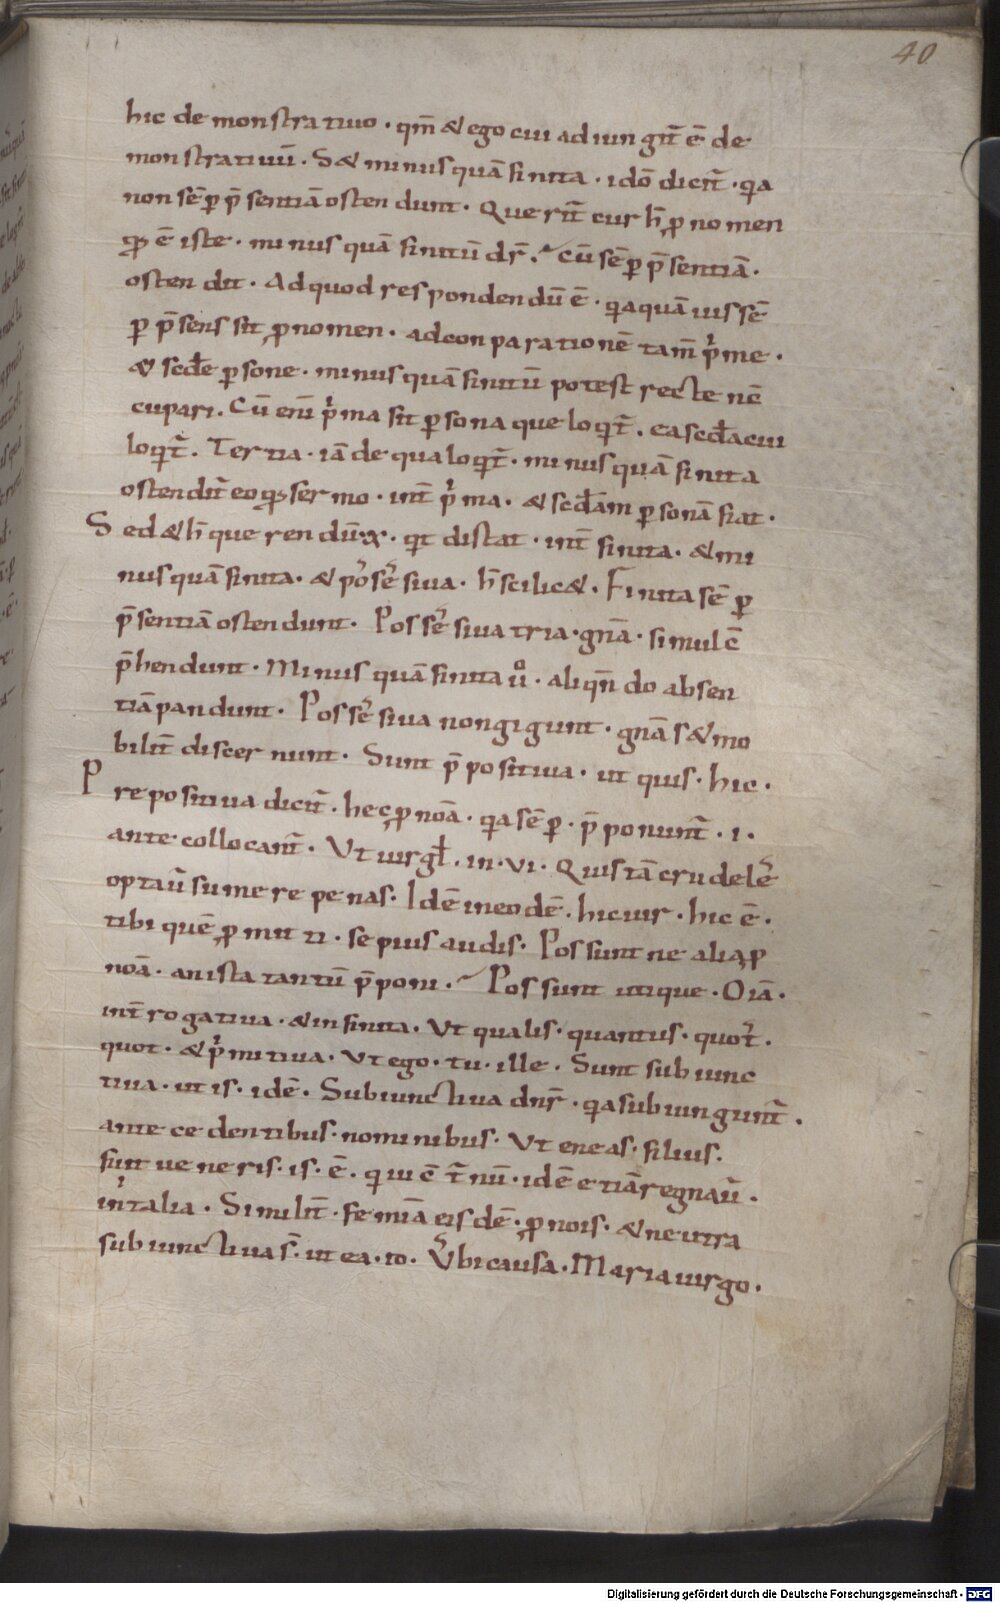 40
hic demonstratiuo · qm̄ & ego cui adiungit̄ ē de
monstratiuū · S& minus quā finita · idō dicit̄ · qa
non sēp p̄sentiā ostendunt · Querit̄ cur h̄ pnomen
qd ē iste · minus quā finitū dr̄ · cū sēp p̄sentiā ·
ostendit · Ad quod respondendū ē · qa quāuis sē
p p̄sens sit pnomen · ad conparationē tam̄ p̄me ·
& scde psone · minus quā finitū potest recte nc̄
cupari · Cū enī p̄ma sit psona que loqt̄ · ea scda cui
loqt̄ · Tertia · iā de qua loqt̄ · minus quā finita
ostendit̄ eo qd sermo · int̄ p̄ma · & scdam psonā fiat ·
Sed & h̄ querendū · qt distat · int̄ finita · & mi
nus quā finita · & pos̄sesiua · h̄ scilic& · Finita sēp
p̄sentiā ostendunt · Possesiua tria · gn̄a · simul c̄
p̄hendunt · Minus quā finita ů · aliqn̄do absen
tiā pandunt · Possesiua non gigunt · gn̄a s& mo
bilit̄ discernunt · Sunt p̄positiua · ut quis · hic ·
Prepositiua dicit̄ · hec pnoā · qa sēp · p̄ponunt̄ · i ·
ante collocant̄ · Ut uirgl̄ · in · vi · Quis tā crudele᷒
optaū sumere penas · Idē in eodē · hic uir · hic ē ·
tibi quē pmitti · sepius audis · Possunt ne alia p
noā · an ista tantū p̄poni · Possunt utique · Oīa ·
int̄rogatiua · & infinita · Ut qualis · quantus · quot̄ ·
quot · & p̄mitiua · Ut ego · tu · ille · Sunt subiunc
tiua · ut is · idē · Subiunctiua dn̄r · qa subiungunt̄ ·
antecedentibus · nominibus · Ut eneas · filius ·
fuit ueneris · is · ē · qui ē t̄nū · idē etiā regnaū ·
in italia · Similit̄ · femīa eisdē · pnois · & neutra
subiunctiua s̄ · ut ea · io · Ubi causa · Maria uirgo ·
Digitalisierung gefördert durch die Deutsche Forschungsgemeinschaft - DFG